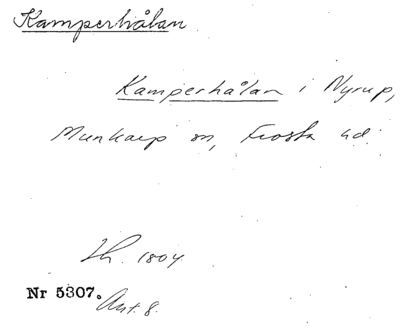 Kamperhålan
Kamperhålan i Nyrup,
Munkarp sn, Frosta hd.
Lh. 1804
Nr 5307.
Ant. 8.